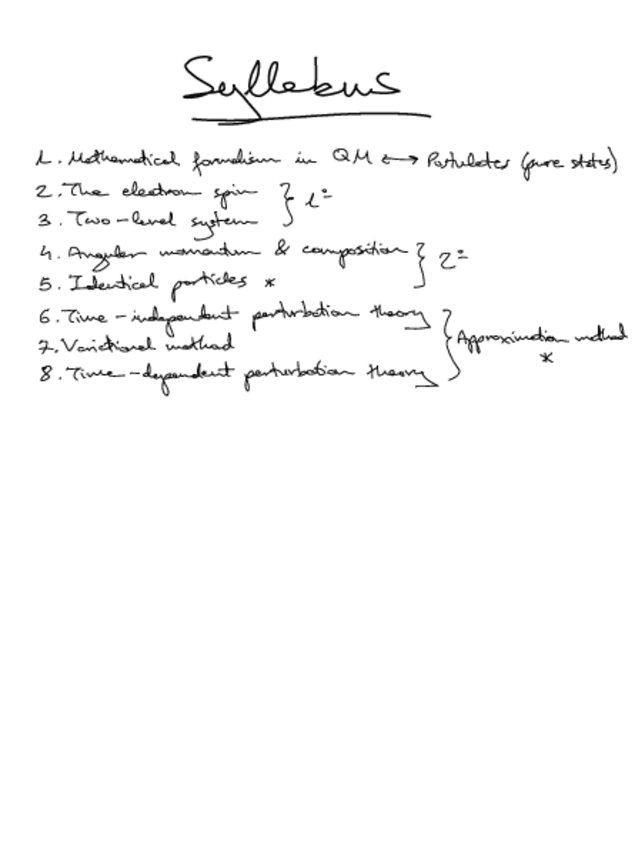 Syllabus
1. Mathematical formalism in QM ↔ Postulates (pure states)
2. The electron spin
3. Two-level system } 1º
4. Angular momentum & composition
5. Identical particles * } 2º
6. Time-independent perturbation theory
7. Variational method } Approximation method *
8. Time-dependent perturbation theory